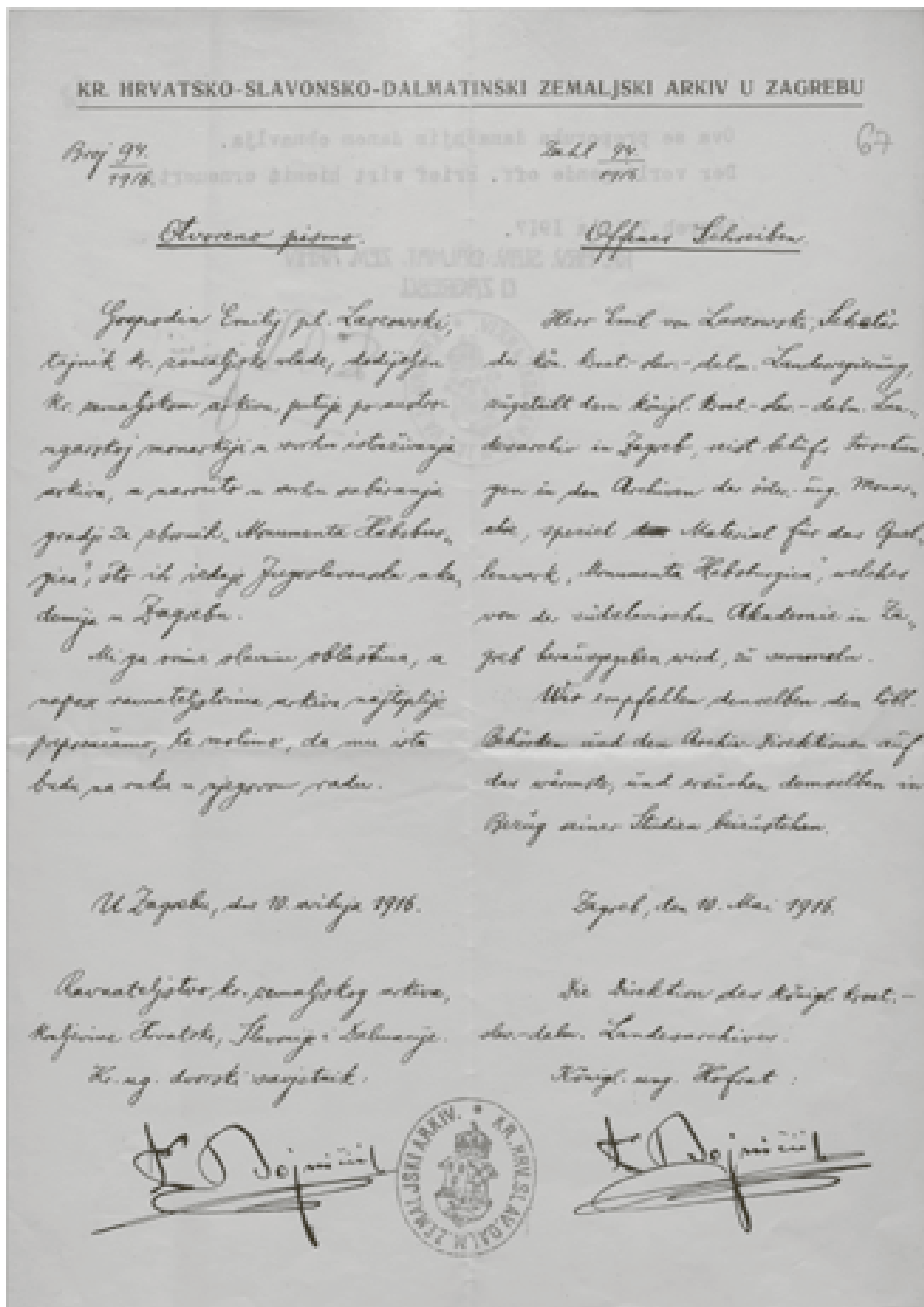 KR. HRVATSKO-SLAVONSKO-DALMATINSKI ZEMALJSKI ARKIV U ZAGREBU
67
Broj 94.
1916.
Otvoreno pismo.
Gospodin Emilij pl. Laszowski,
tajnik kr. zemaljske vlade, dodijeljen
kr. zemaljskom arkivu, putuje po austro-
ugarskoj monarkiji u svrhu istraživanja
arkiva, a naročito u svrhu sabiranja
gradje za zbornik „Monumenta Habsbur-
gica", što ih izdaje Jugoslavenska aka-
demija u Zagrebu.
Mi ga svima slavnim oblastima, a
napose ravnateljstvima arkiva najtoplije
preporučamo, te molimo, da mu ista
budu na ruku u njegovom radu.
U Zagrebu, dne 10. svibnja 1916.
Ravnateljstvo kr. zemaljskog arkiva,
Kraljevine Hrvatske, Slavonije i Dalmacije.
Kr. ug. dvorski savjetnik:
Bojničić
Zahl 94.
1916.
Offenes Schreiben.
Herr Emil von Laszowski, Sekretär
der kön. kroat.-slav.-dalm. Landesregierung,
zugeteilt dem königl. kroat.-slav.-dalm. Lan-
desarchiv in Zagreb, reist behufs Forschun-
gen in den Archiven der öster.-ung. Monar-
chie, speziel Material für das Quel-
lenwerk „Monumenta Habsburgica", welches
von der südslavischen Akademie in Za-
greb herausgegeben wird, zu sammeln.
Wir empfehlen denselben den löbl.
Behörden und den Archiv-Direktionen auf
das wärmste, und ersuchen demselben in
Bezug seiner Studien beizustehen.
Zagreb, den 10. Mai 1916.
Die Direktion des königl. kroat.-
slav.-dalm. Landesarchives.
Königl. ung. Hofrat:
Bojničić
KR. HRV. SLAV. DALM. ZEMALJSKI ARKIV.